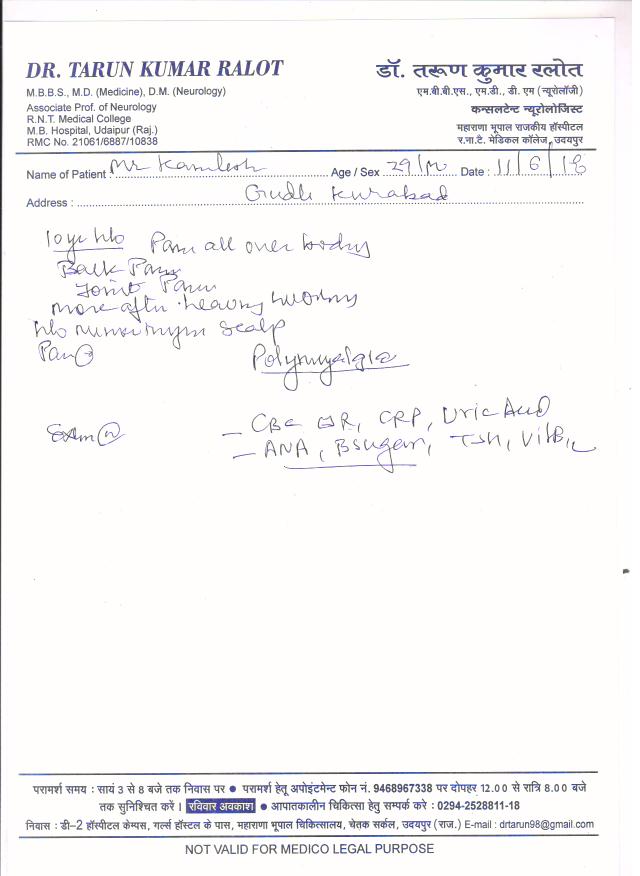 DR. TARUN KUMAR RALOT
M.B.B.S., M.D. (Medicine), D.M. (Neurology)
Associate Prof. of Neurology
R.N.T. Medical College
M.B. Hospital, Udaipur (Raj.)
RMC No. 21061/6887/10838
डॉ. तरूण कुमार रलोत
एम.बी.बी.एस., एम.डी., डी. एम (न्यूरोलॉजी)
कन्सलटेन्ट न्यूरोलोजिस्ट
महाराणा भूपाल राजकीय हॉस्पीटल
र.ना.टे. मेडिकल कॉलेज, उदयपुर
Name of Patient : Mr Kamlesh Age / Sex 29/M Date : 11/6/18
Address : Gudli Kurabad
10yr h/o Pain all over body
Back Pain
Joint Pain
more after heavy working
h/o scalp
Pain
Polymyalgia
Exam (N)
- CBC ESR, CRP, Uric Acid
- ANA, B sugar, TSH, VitB12
परामर्श समय : सायं 3 से 8 बजे तक निवास पर ● परामर्श हेतू अपोइंटमेन्ट फोन नं. 9468967338 पर दोपहर 12.00 से रात्रि 8.00 बजे
तक सुनिश्चित करें । रविवार अवकाश ● आपातकालीन चिकित्सा हेतु सम्पर्क करे : 0294-2528811-18
निवास : डी–2 हॉस्पीटल केम्पस, गर्ल्स हॉस्टल के पास, महाराणा भूपाल चिकित्सालय, चेतक सर्कल, उदयपुर (राज.) E-mail : drtarun98@gmail.com
NOT VALID FOR MEDICO LEGAL PURPOSE